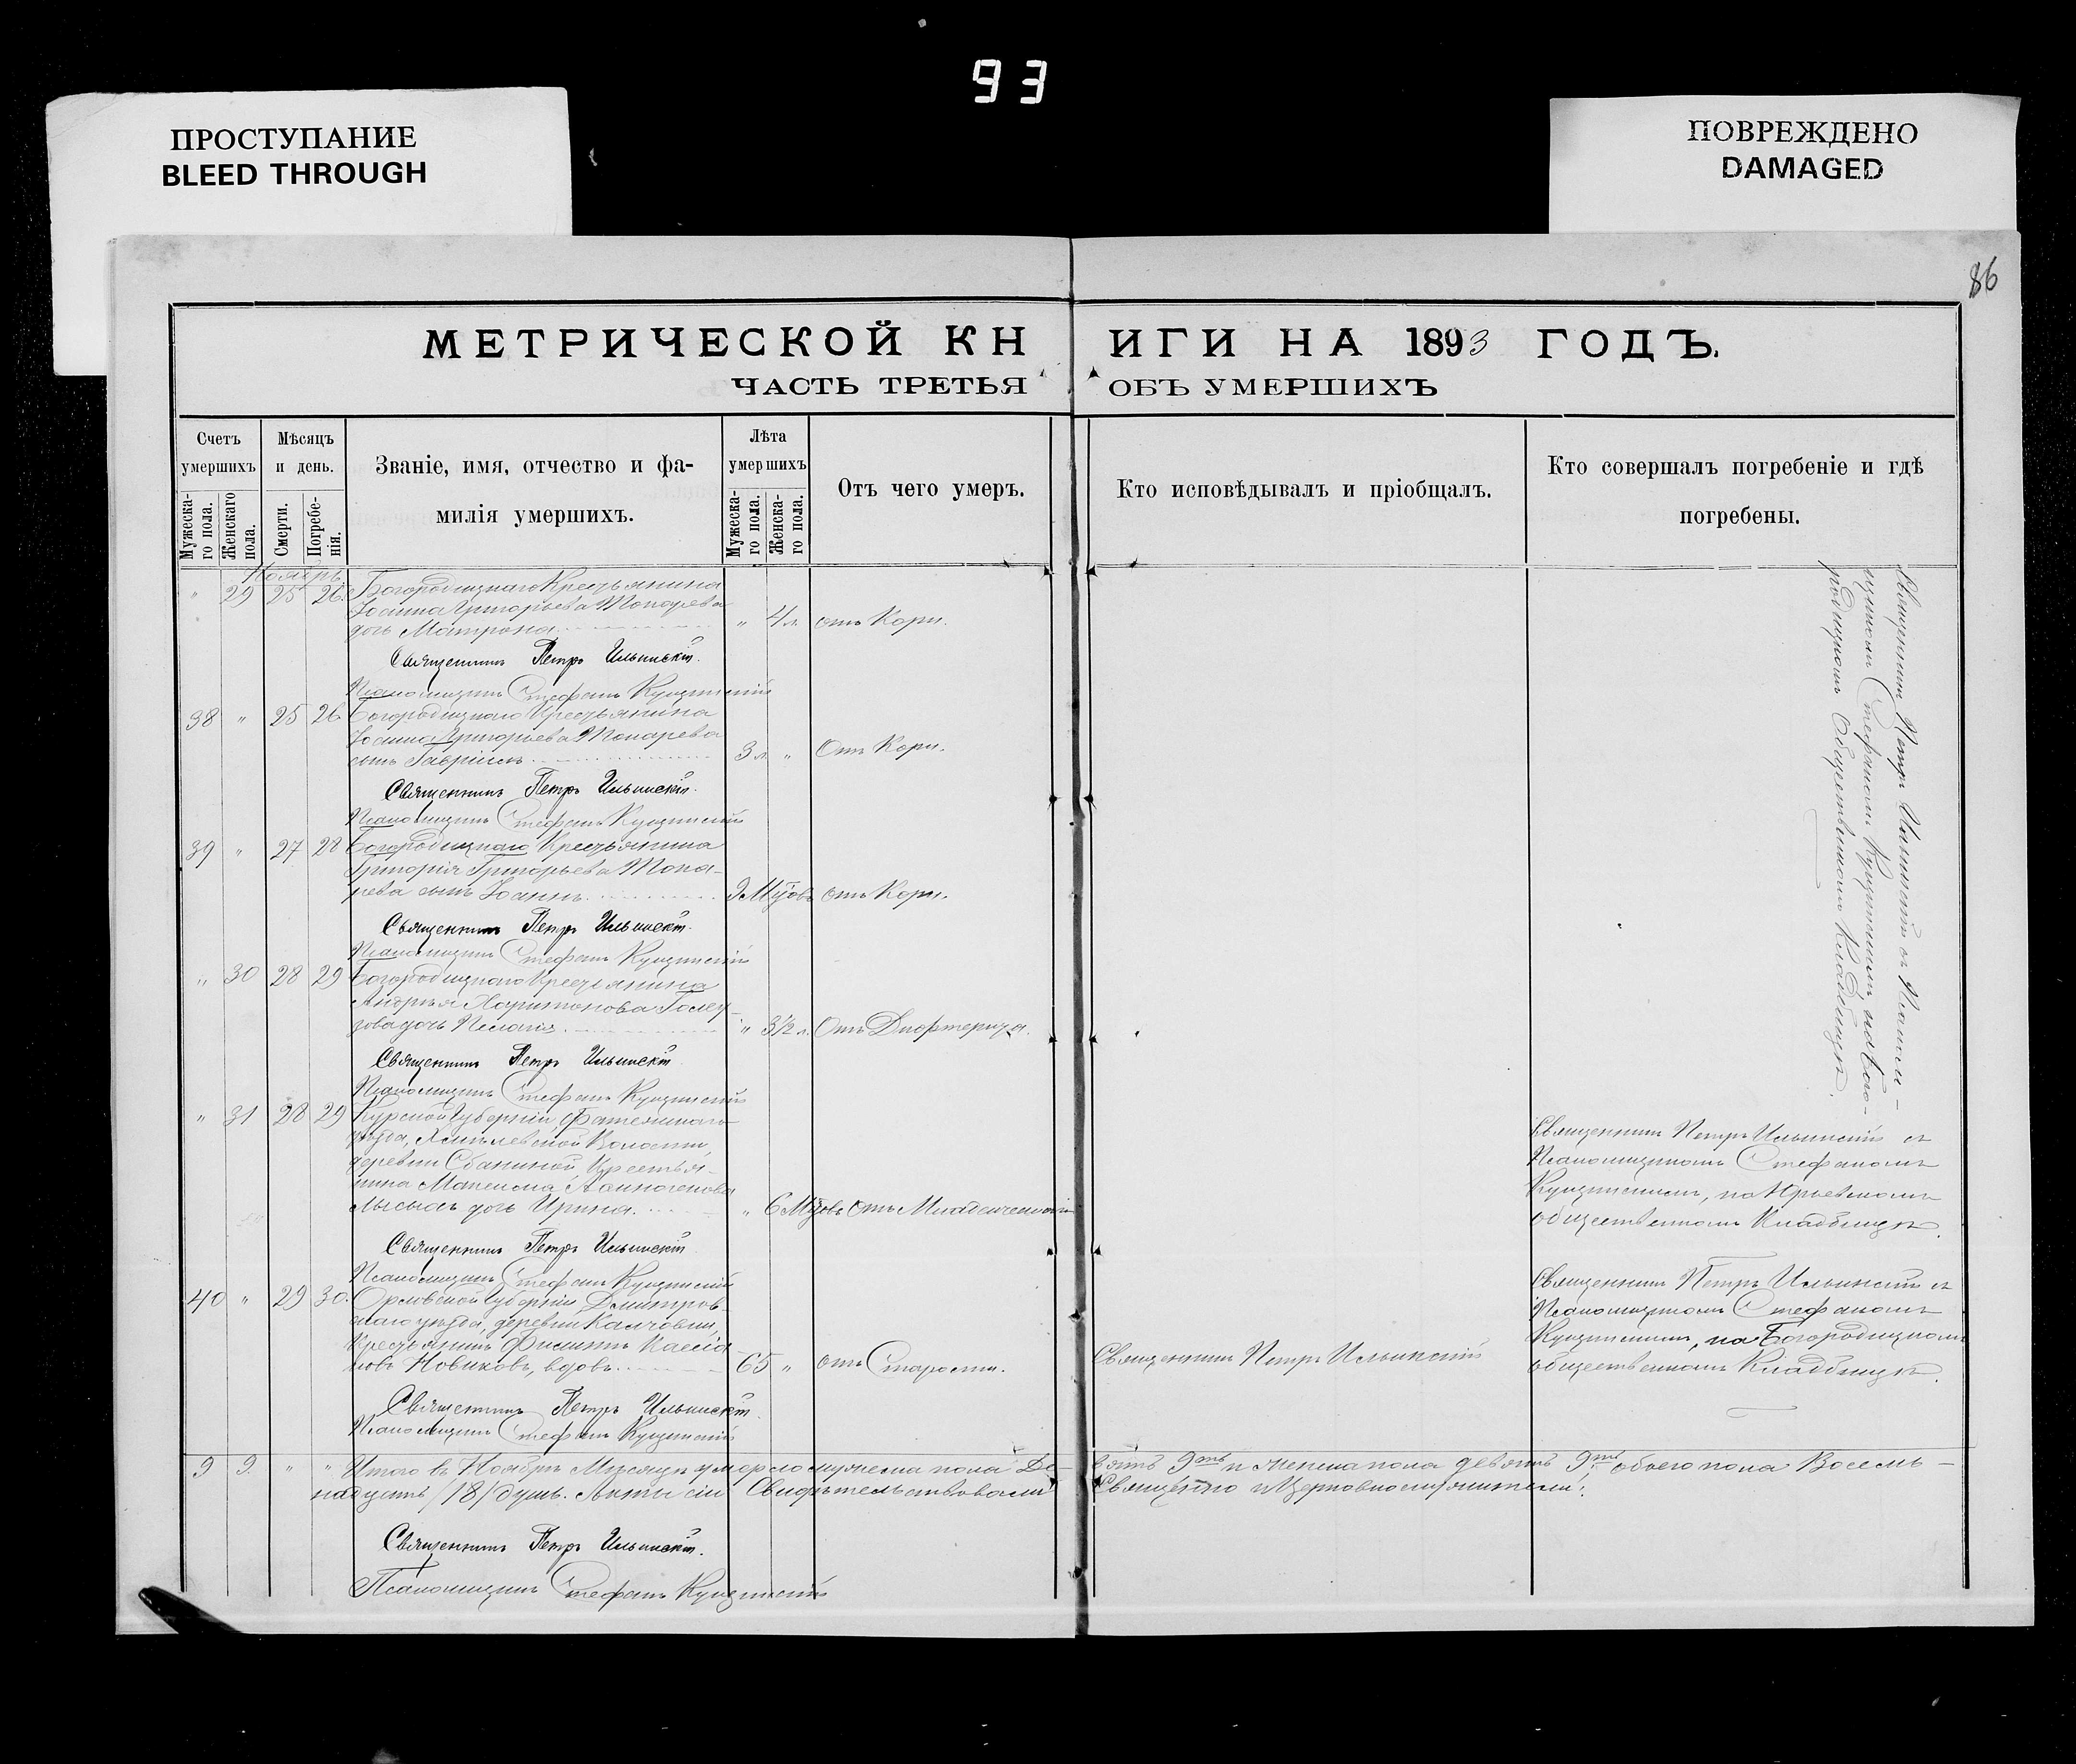 93
ПРОСТУПАНИЕ
BLEED THROUGH
ПОВРЕЖДЕНО
DAMAGED
86
МЕТРИЧЕСКОЙ КНИГИ НА 1893 ГОДЪ.
ЧАСТЬ ТРЕТЬЯ ОБЪ УМЕРШИХЪ
Счетъ умершихъ
Мѣсяцъ и день.
Званіе, имя, отчество и фа-
милія умершихъ.
Лѣта умершихъ
Отъ чего умеръ.
Кто исповѣдывалъ и пріобщалъ.
Кто совершалъ погребеніе и гдѣ
погребены.
Мужеска-
го пола.
Женскаго
пола.
Смерти.
Погребе-
нія.
Мужеска-
го пола.
Женска-
го пола.
Ноябрь
" 29 25 26 Богородицкаго Крестьянина
Іоанна Григорьева Токарева
дочь Матрона " 4 л. отъ Кори.
Священникъ Петръ Ильинскій.
Псаломщикъ Стефанъ
38 " 25 26 Богородицкаго Крестьянина
Іоанна Григорьева Токарева
сынъ Гавріилъ 3 л. " Отъ Кори.
Священникъ Петръ Ильинскій.
Псаломщикъ Стефанъ
39 " 27 28 Богородицкаго Крестьянина
Григорія Григорьева Тока-
рева сынъ Іоаннъ 9 М-цовъ отъ Кори.
Священникъ Петръ Ильинскій.
Псаломщикъ Стефанъ
" 30 28 29 Богородицкаго Крестьянина
Андрея Харитонова
дочь Пелагія " 3½ л. Отъ Дифтерита.
Священникъ Петръ Ильинскій
Псаломщикъ Стефанъ
" 31 28 29 Курской Губерніи, Фатежскаго
уѣзда, Волости,
деревни Сбаниной, Крестья-
нина Максима
дочь Ирина. " 6 М-цовъ Отъ Младенческой
Священникъ Петръ Ильинскій
Псаломщикъ Стефанъ
40 " 29 30 Орловской Губерніи, Дмитров-
скаго уѣзда, деревни
Крестьянинъ Филиппъ Кассіа-
новъ Новиковъ, вдовъ 65 " отъ Старости.
Священникъ Петръ Ильинскій
Псаломщикъ Стефанъ
Священникъ Петръ Ильинскій
Священникъ Петръ Ильинскій съ Псалом-
щикомъ Стефаномъ на Бого-
родицкомъ Общественномъ Кладбищѣ.
Священникъ Петръ Ильинскій съ
Псаломщикомъ Стефаномъ
на
общественномъ Кладбищѣ.
Священникъ Петръ Ильинскій съ
Псаломщикомъ Стефаномъ
на Богородицкомъ
общественномъ Кладбищѣ.
9 9 " " Итого въ Ноябрѣ Мѣсяцѣ умерло мужеска пола Де-
вять 9ть и женска пола девять 9ть обоего пола Восемь-
надцать /18/ душъ. Акты сіи Свидѣтельствовали
Священно и Церковнослужители:
Священникъ Петръ Ильинскій.
Псаломщикъ Стефанъ